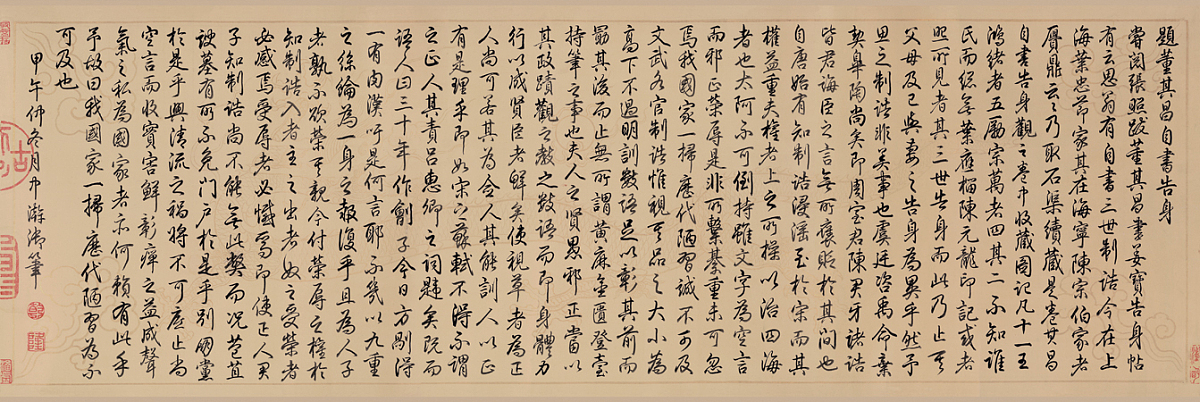 題董其昌自書告身
嘗閱張照跋董其昌書妾寶告身帖
有云思翁有自書三世制誥今在上
海葉忠節家其在海寧陳宗伯家者
贗鼎云云乃取石渠續藏是卷其昌
自書告身觀之卷中收藏圖記凡十一王
鴻緒者五勵宗萬者四其二不知誰
氏而總無葉廕榴陳元龍印記或者
照所見者其三世告身而此乃止其
父母及己與妻之告身為異乎然予
思之制誥非美事也虞廷咨禹命棄
契皋陶尚矣即周室君陳君牙諸誥
皆君誨臣之言無所褒貶於其間也
自唐始有知制誥浸淫至於宋而其
權益重夫權者上之所操以治四海
者也太阿不可倒持雖文字為空言
而邪正榮辱是非所繫綦重未可忽
焉我國家一掃歷代陋習誠不可及
文武各官制誥惟視其品之大小為
高下不過明訓數語足以彰其前而
勗其後而止無所謂黃麻金匱登臺
持筆之事也夫人之賢愚邪正當以
其政蹟觀之教之數語而即身體力
行以成賢臣者鮮矣使視草者為正
人尚可若其為僉人其能訓人以正
有是理乎即如宋之蘇軾不得不謂
之正人其責呂惠卿之詞韙矣既而
語人曰三十年作劊子今日方剮得
一有肉漢吁是何言耶不幾以九重
之絲綸為一身之報復乎且為人子
者孰不欲榮其親今付榮辱之權於
知制誥入者主之出者奴之受榮者
必感焉受辱者必憾焉即使正人君
子知制誥尚不能無此弊而況苞苴
諛墓有所不免門戶於是乎別朋黨
於是乎興清流之禍將不可底止尚
空言而收實害鮮彰癉之益成聲
氣之私為國家者亦何賴有此乎
予故曰我國家一掃歷代陋習為不
可及也
甲午仲冬月中澣御筆